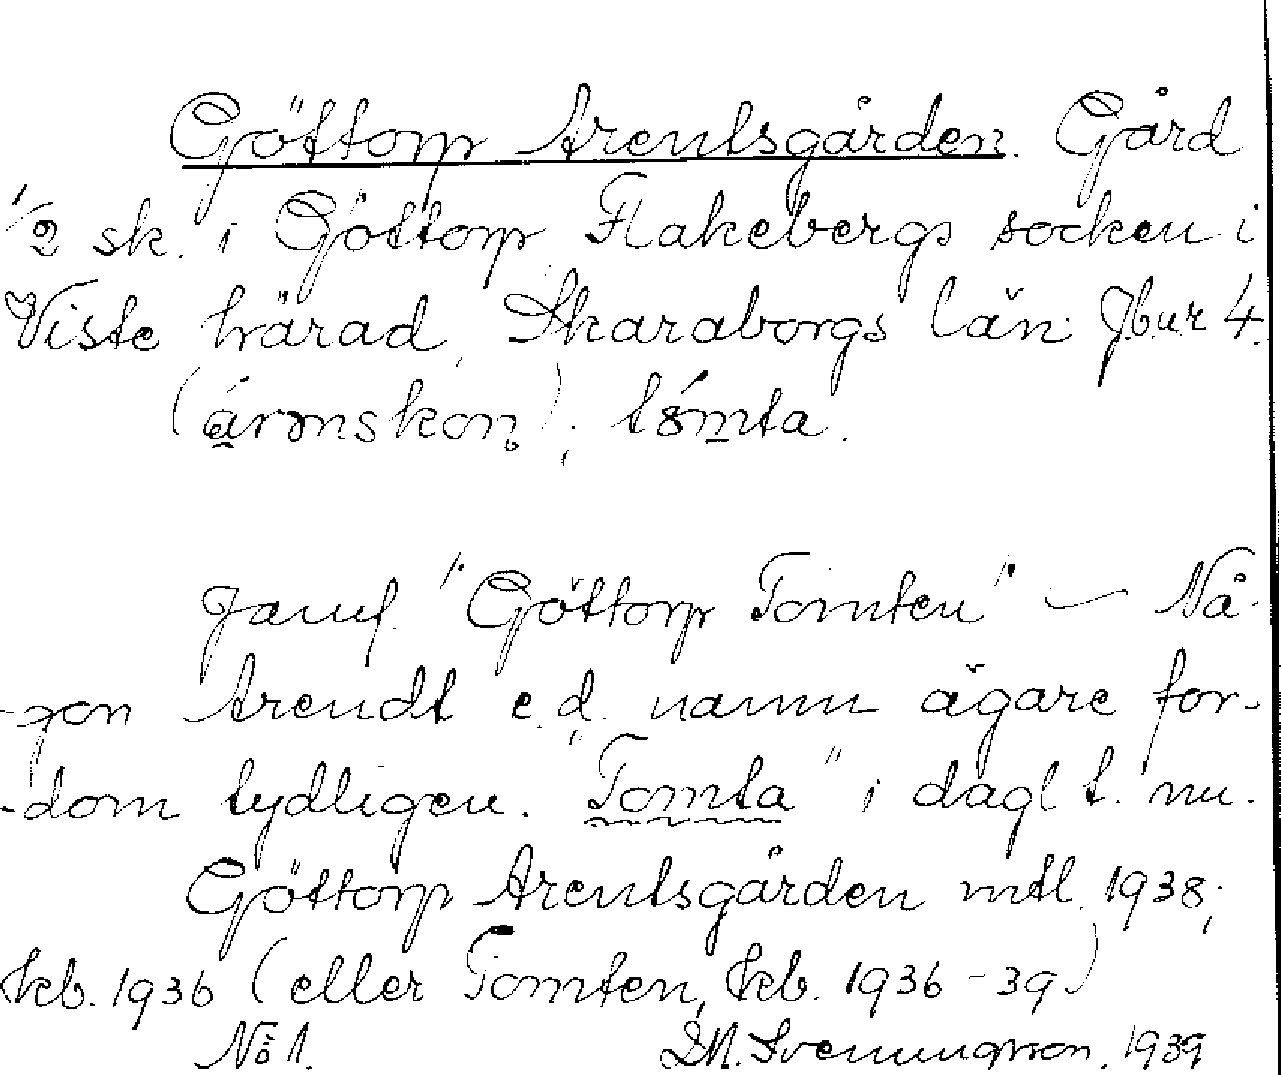 Göttorp Arentsgården. Gård
1/2 sk. i Göttorp Flakebergs socken i
Viste härad, Skaraborgs län. Jb ur 4.
tómta.
Jämf. "Göttorp Tomten" – Nå-
-gon Arendt e.d. namn ägare for-
-dom tydligen. "Tomta" i dagl. t. nu.
Göttorp Arentsgården mtl. 1938;
kb. 1936 (eller Tomten, kb. 1936-39)
No 1. Svenungsson, 1939